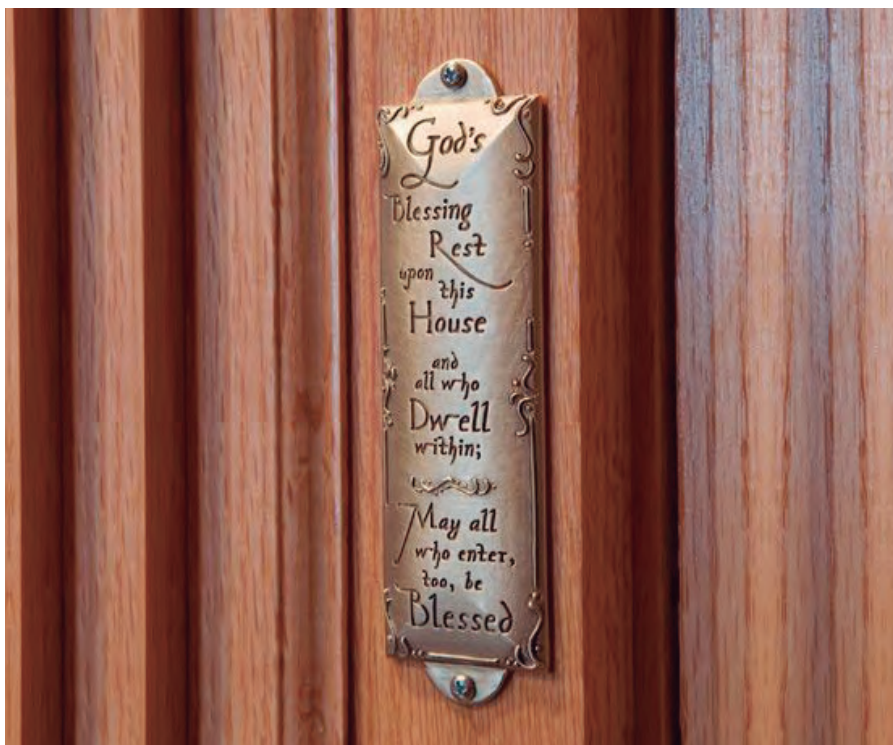 God's
Blessing
Rest
upon
this
House
and
all who
Dwell
within;
May all
who enter,
too, be
Blessed